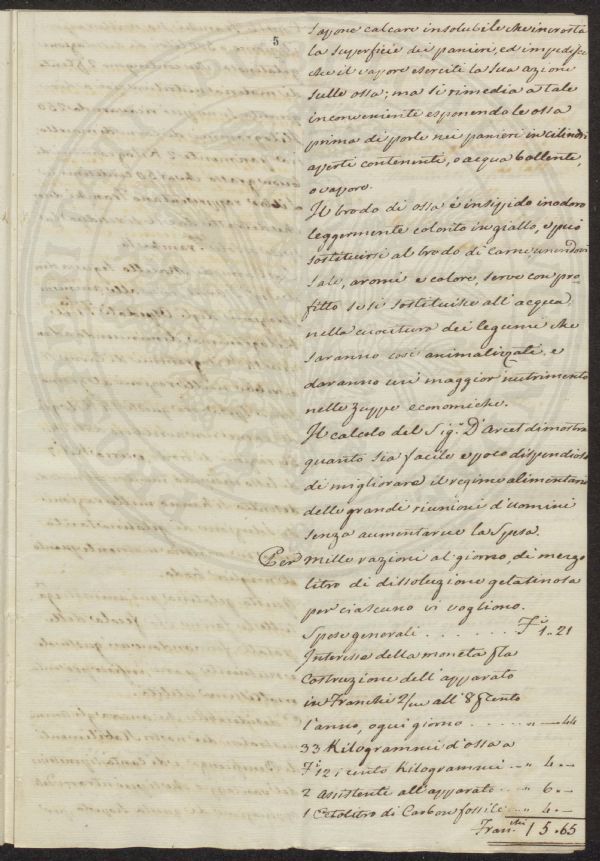 5
sapone calcare insolubile che incrosta
la superficie dei panieri, ed impedisce
che il vapore eserciti la sua azione
sulle ossa; ma si rimedia a tale
inconveniente esponendo le ossa
prima di porle nei panieri in cilindri
aperti contenenti, o acqua bollente,
o vapore.
Il brodo di ossa è insipido inodoro
leggermente colorito in giallo, e può
sostituirsi al brodo di carne, unendovi
sale, aromi e colore, serve con pro
fitto se si sostituisce all'acqua
nella cuocitura dei legumi che
saranno così animalizzati, e
daranno un maggior nutrimento
nelle zuppe economiche.
Il calcolo del Sig.r D'Arcet dimostra
quanto sia facile e poco dispendioso
di migliorare il regime alimentario
delle grandi riunioni d'uomini
senza aumentarne la spesa.
Per mille razioni al giorno, di mezzo
litro di dissoluzione gelatinosa
per ciascuno vi vogliono.
Spese generali . . . . . . . F.i 1.. 21
Interesse della moneta p la
Costruzione dell'apparato
in Franchi 2/m all' 8 p cento
l'anno, ogni giorno . . . . . " — 44
33 Kilogrammi d'ossa a
F.i 12 i cento Kilogrammi . . . " 4. —
2 assistente all'apparato . . . " 6. —
1 Ectolitro di Carbon fossile . . " 4. —
Fran.chi 15.65